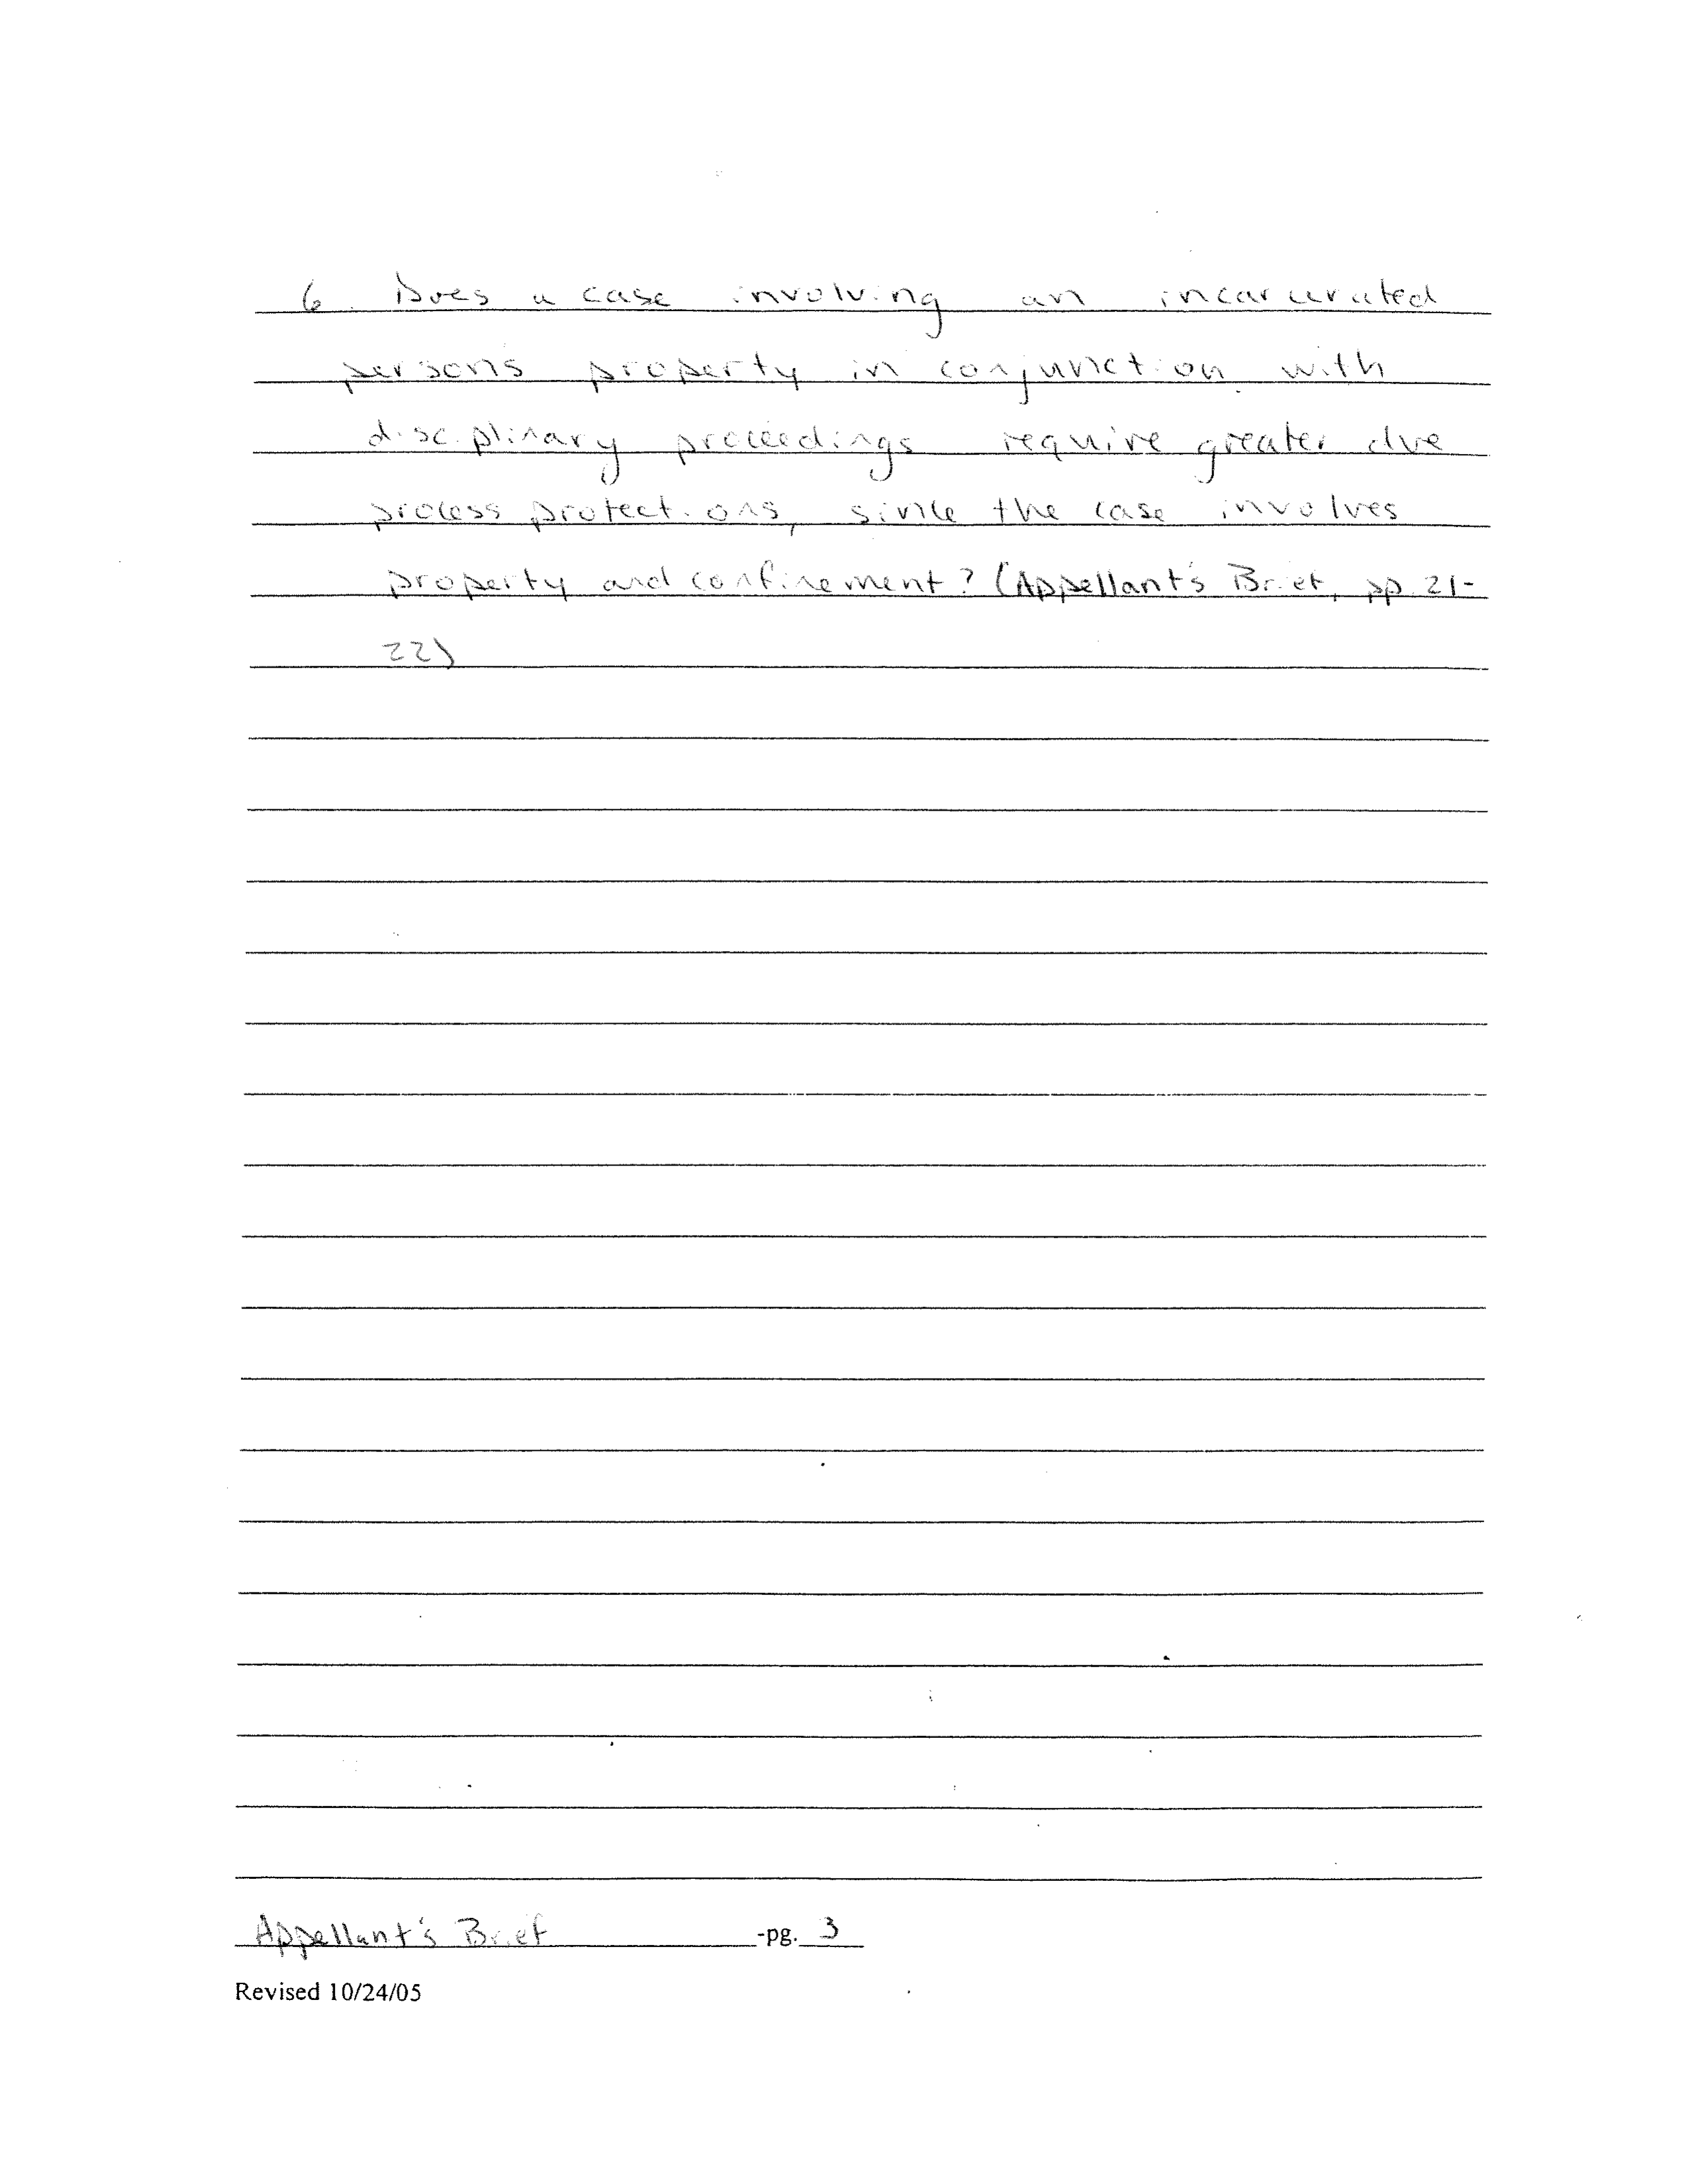 6. Does a case involving an incarcerated
persons property in conjunction with
disciplinary proceedings require greater due
process protections, since the case involves
property and confinement? (Appellant's Brief, pp. 21-
22)
Appellant's Brief -pg. 3
Revised 10/24/05